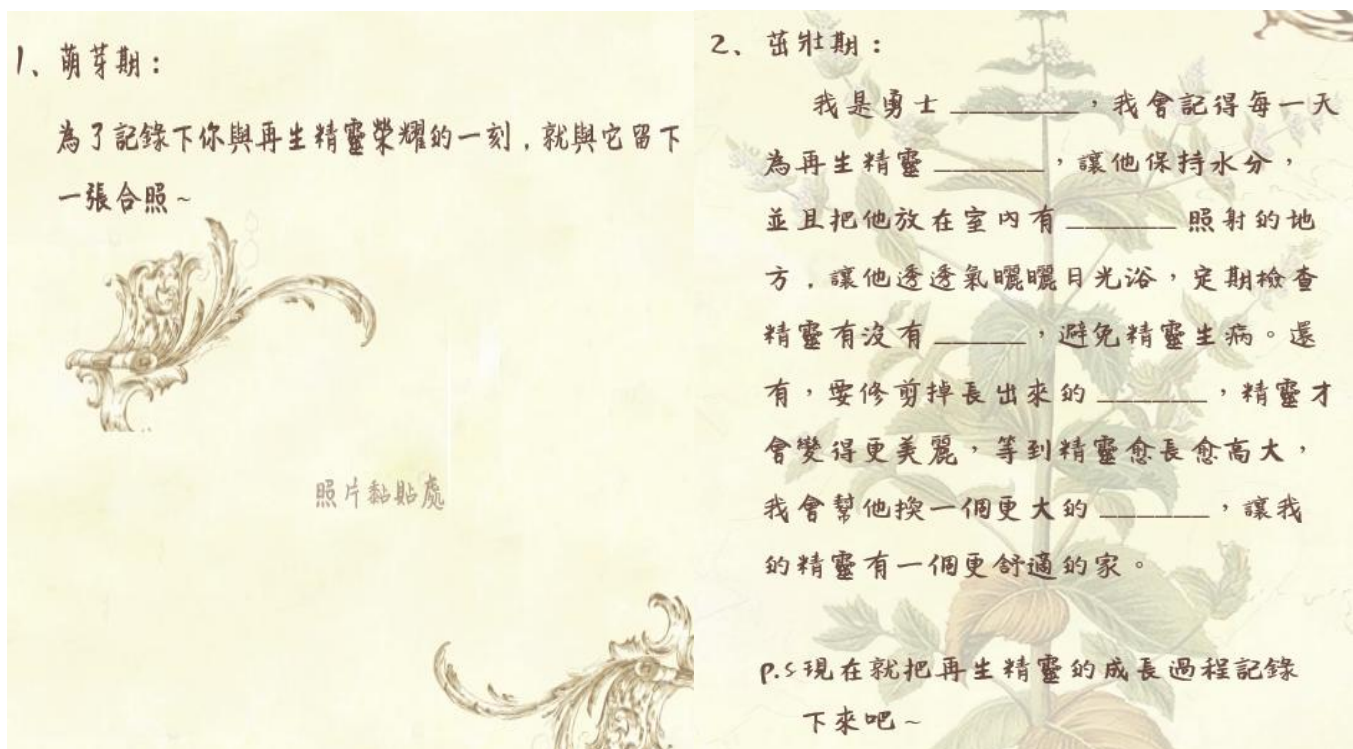 1、萌芽期：
為了記錄下你與再生精靈榮耀的一刻，就與它留下
一張合照~
照片黏貼處
2、茁壯期：
我是勇士 ________，我會記得每一天
為再生精靈 ______，讓他保持水分，
並且把他放在室內有 ______ 照射的地
方，讓他透透氣曬曬日光浴，定期檢查
精靈有沒有 _____，避免精靈生病。還
有，要修剪掉長出來的 ______，精靈才
會變得更美麗，等到精靈愈長愈高大，
我會幫他換一個更大的 ______，讓我
的精靈有一個更舒適的家。
p.s現在就把再生精靈的成長過程記錄
下來吧~